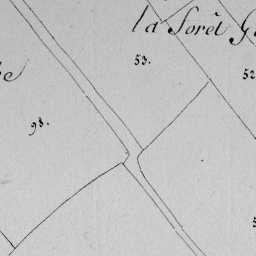 la Forêt
53.
52
98.